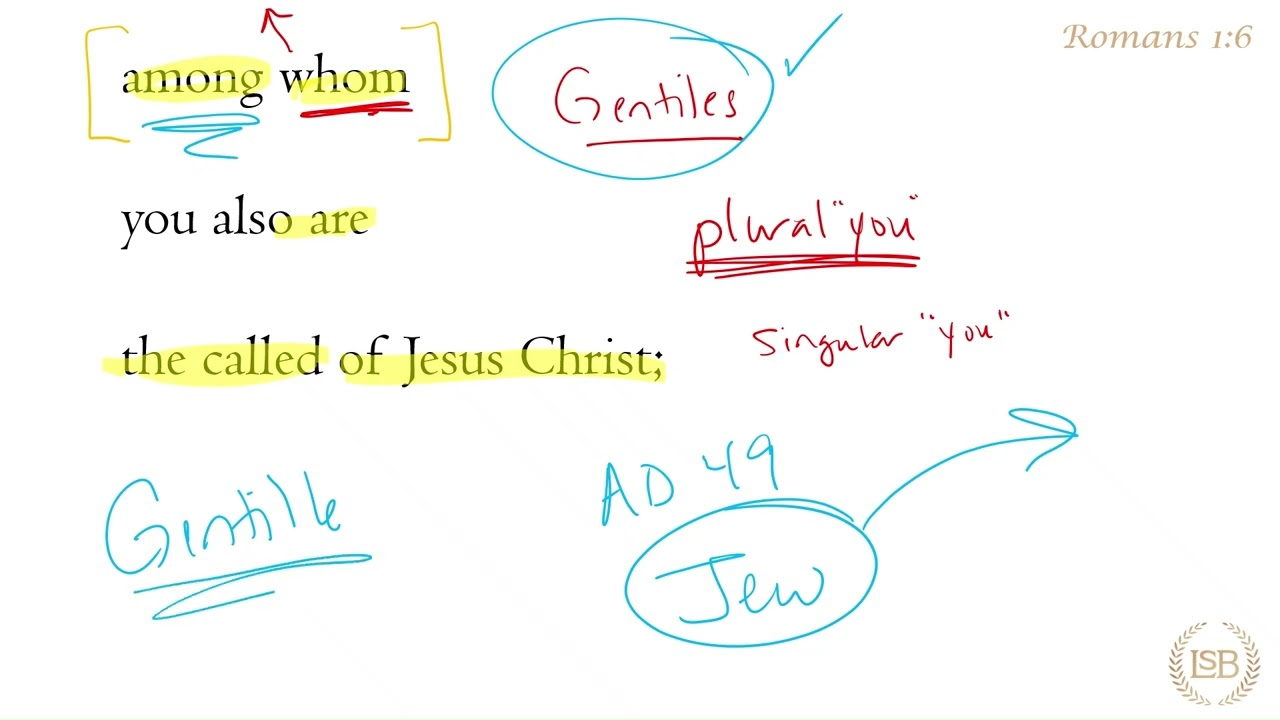 Romans 1:6
among whom
Gentiles
you also are
plural "you"
the called of Jesus Christ;
Singular "you"
AD 49
Gentile
Jew
LSB